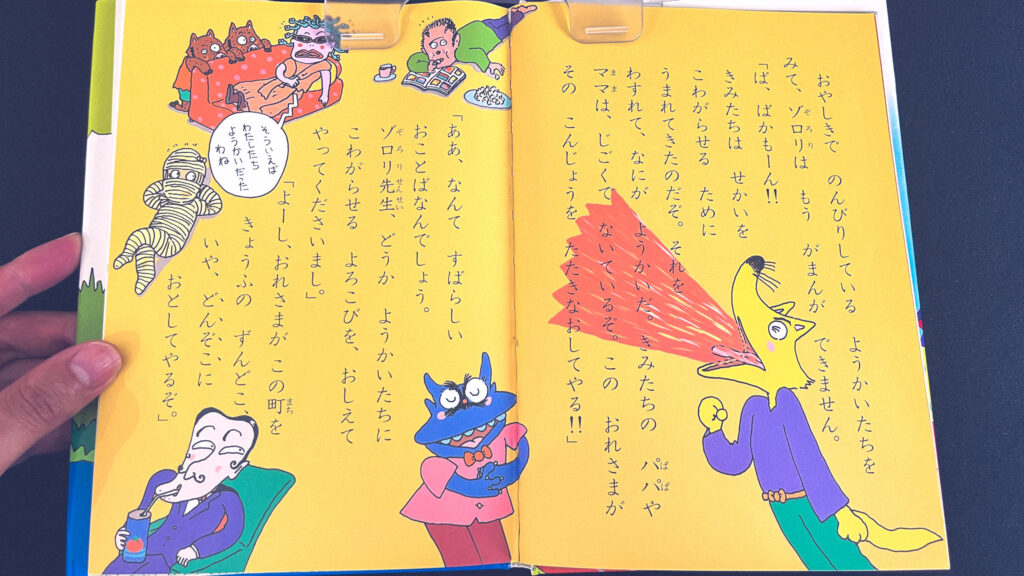 おやしきで のんびりしている ようかいたちを
みて、ゾロリは もう がまんが できません。
「ば、ばかもーん!!
きみたちは せかいを
こわがらせる ために
うまれてきたのだぞ。それを
わすれて、なにが ようかいだ。きみたちの パパや
ママは、じごくで ないているぞ。この おれさまが
その こんじょうを たたきなおしてやる!!」
「ああ、なんて すばらしい
おことばなんでしょう。
ゾロリ先生、どうか ようかいたちに
こわがらせる よろこびを、おしえて
やってくださいまし。」
「よーし、おれさまが この町を
きょうふの ずんどこ、
いや、どんぞこに
おとしてやるぞ。」
そういえば
わたしたち
ようかいだった
わね